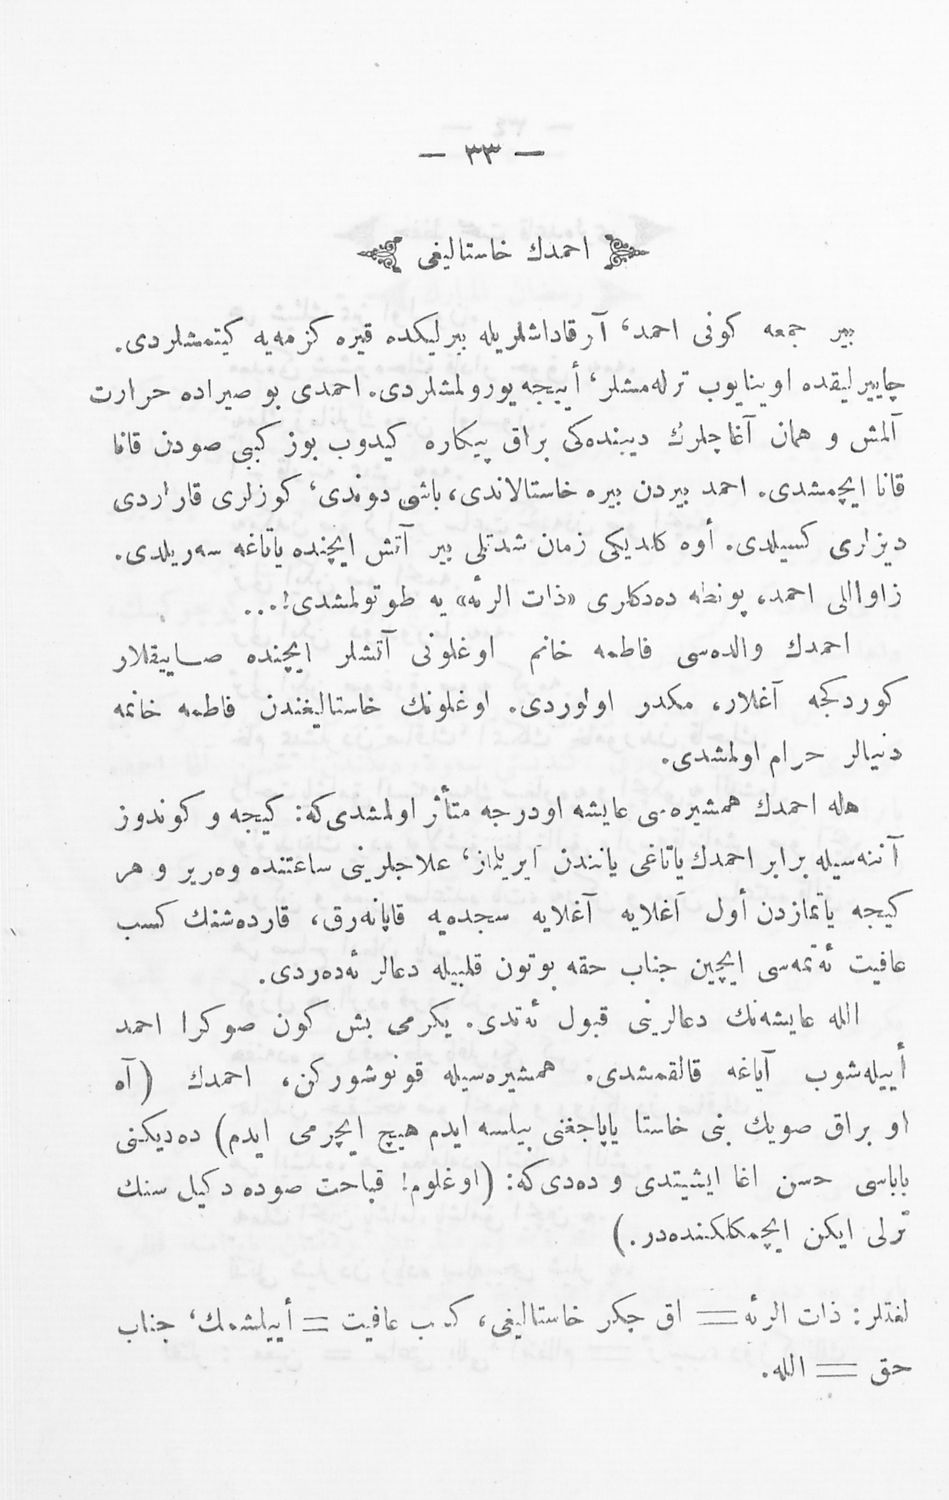 — ٣٣ —
احمدك خاستاليغى
بير جمعه كونى احمد، آرقاداشلريله بيرليكده قيره كزمه‌يه كيتمشلردى.
چاييرليقده اوينايوب ترله‌مشلر، أييجه يورولمشلردى. احمدى بو صيراده حرارت
آلمش و همان آغاچلرك ديبنده‌كى براق پيكاره كيدوب بوز كبى صودن قانا
قانا ايچمشدى. احمد بيردن بيره خاستالاندى، باشى دوندى، كوزلرى قاراردى
ديزلرى كسيلدى. أوه كلديكى زمان شدتلى بير آتش ايچنده ياتاغه سه‌ريلدى.
زاواللى احمد، پونطه ده‌دكلرى «ذات الرئه» يه طوتولمشدى!...
احمدك والده‌سى فاطمه خانم اوغلونى آتشلر ايچنده صاييقلار
كوردكجه آغلار، مكدر اولوردى. اوغلونك خاستاليغندن فاطمه خانمه
دنيالر حرام اولمشدى.
هله احمدك همشيره‌سى عايشه اودرجه متأثر اولمشدى‌كه: كيجه و كوندوز
آننه‌سيله برابر احمدك ياتاغى يانندن آيريلماز، علاجلرينى ساعتنده وه‌رير و هر
كيجه ياتمازدن أول آغلايه آغلايه سجده‌يه قاپانه‌رق، قارده‌شنك كسب
عافيت ئه‌تمه‌سى ايچين جناب حقه بوتون قلبيله دعالر ئه‌ده‌ردى.
الله عايشه‌نك دعالرينى قبول ئه‌تدى. يكرمى بش كون صوكرا احمد
أييله‌شوب آياغه قالقمشدى. همشيره‌سيله قونوشوركن، احمدك (آه
او براق صويك بنى خاستا ياپاجغنى بيلسه ايدم هيچ ايچرمى ايدم) ده‌ديكنى
باباسى حسن اغا ايشيتدى و ده‌دى‌كه: (اوغلوم! قباحت صوده دكيل سنك
ترلى ايكن ايچمكلكنده‌در.)
لغتلر: ذات الرئه = اق جكر خاستاليغى، كسب عافيت = أييلشمك، جناب
حق = الله.